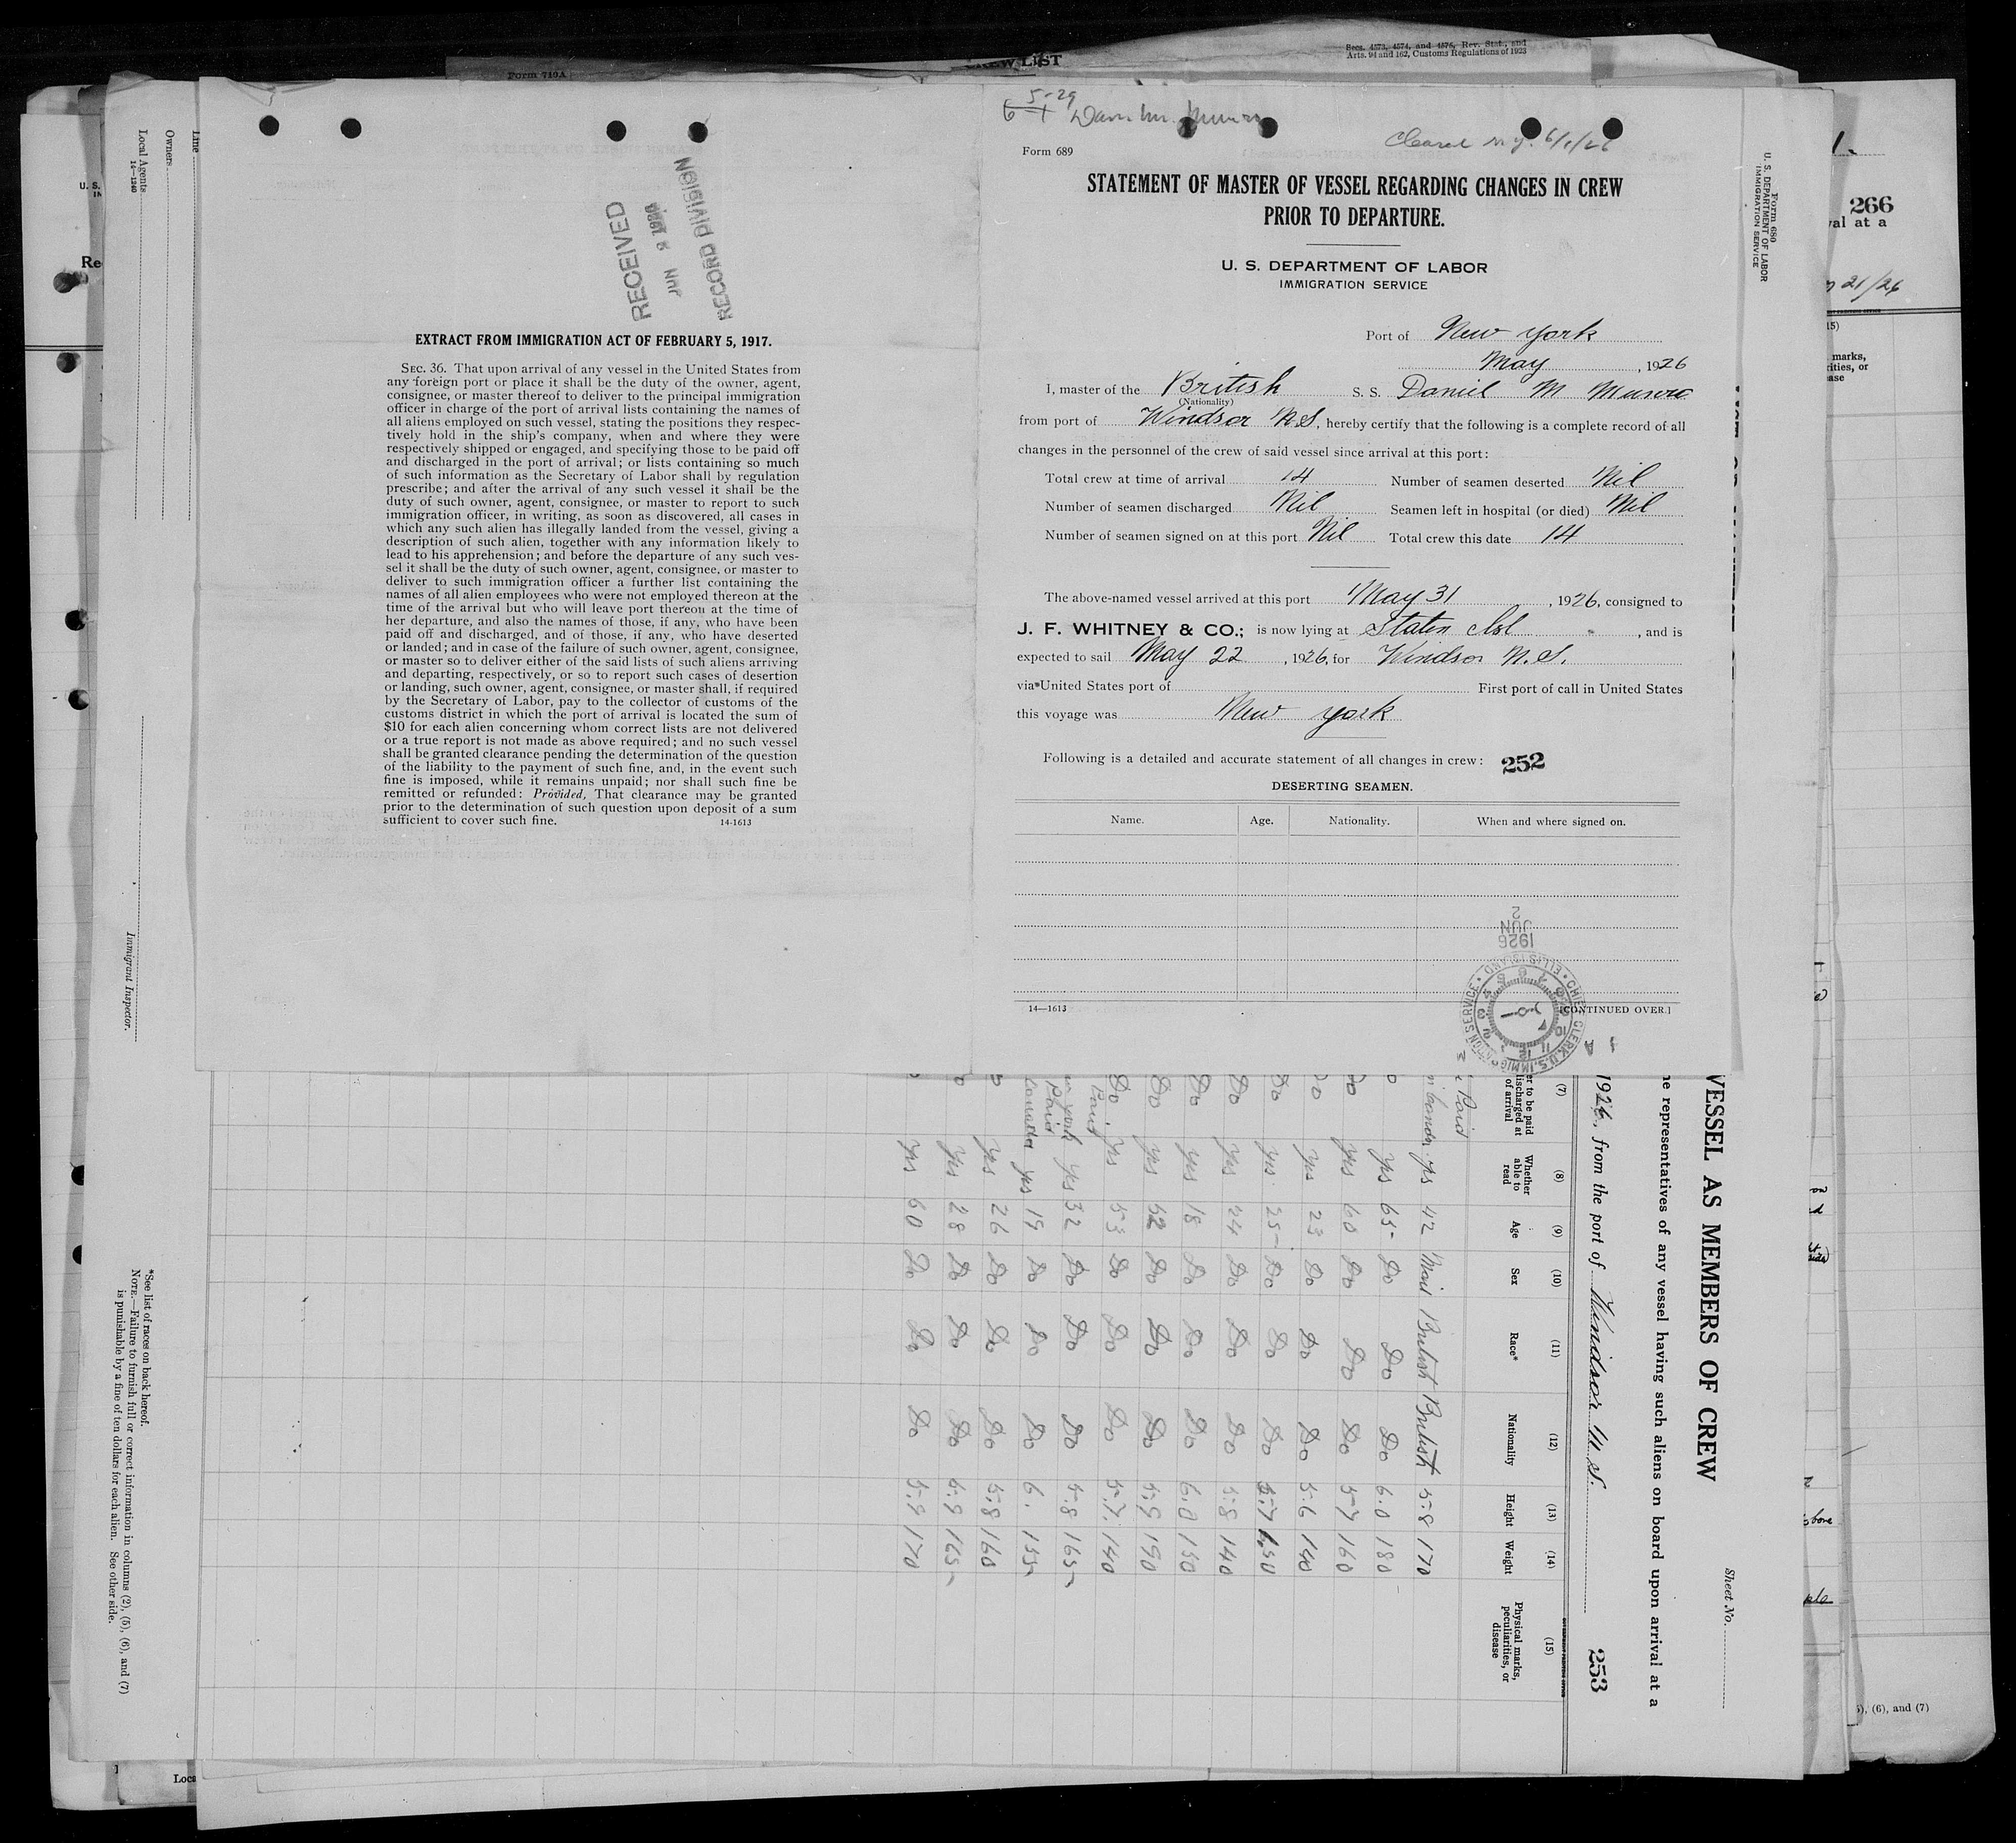 Secs. 4573, 4574, and 4576, Rev. Stat., and
Arts. 94 and 162, Customs Regulations of 1923
CREW LIST
Form 710A
5-29
6-1
Cleared N.Y. 6/1/26
Form 689
STATEMENT OF MASTER OF VESSEL REGARDING CHANGES IN CREW
PRIOR TO DEPARTURE.
U. S. DEPARTMENT OF LABOR
IMMIGRATION SERVICE
Port of New York
May, 1926
I, master of the British S. S. Daniel M Munro
(Nationality)
from port of Windsor N.S, hereby certify that the following is a complete record of all
changes in the personnel of the crew of said vessel since arrival at this port:
Total crew at time of arrival 14 Number of seamen deserted Nil
Number of seamen discharged Nil Seamen left in hospital (or died) Nil
Number of seamen signed on at this port Nil Total crew this date 14
The above-named vessel arrived at this port May 31, 1926, consigned to
J. F. WHITNEY & CO.; is now lying at Staten Isl, and is
expected to sail May 22, 1926, for Windsor N.S.
via*United States port of First port of call in United States
this voyage was New York
Following is a detailed and accurate statement of all changes in crew: 252
DESERTING SEAMEN.
Name. Age. Nationality. When and where signed on.
14—1613
[CONTINUED OVER.]
CHIEF CLERK, U.S. IMMIGRATION SERVICE • ELLIS ISLAND •
1926
JUN
2
RECEIVED
JUN 2
RECORD DIVISION
EXTRACT FROM IMMIGRATION ACT OF FEBRUARY 5, 1917.
SEC. 36. That upon arrival of any vessel in the United States from
any foreign port or place it shall be the duty of the owner, agent,
consignee, or master thereof to deliver to the principal immigration
officer in charge of the port of arrival lists containing the names of
all aliens employed on such vessel, stating the positions they respec-
tively hold in the ship's company, when and where they were
respectively shipped or engaged, and specifying those to be paid off
and discharged in the port of arrival; or lists containing so much
of such information as the Secretary of Labor shall by regulation
prescribe; and after the arrival of any such vessel it shall be the
duty of such owner, agent, consignee, or master to report to such
immigration officer, in writing, as soon as discovered, all cases in
which any such alien has illegally landed from the vessel, giving a
description of such alien, together with any information likely to
lead to his apprehension; and before the departure of any such ves-
sel it shall be the duty of such owner, agent, consignee, or master to
deliver to such immigration officer a further list containing the
names of all alien employees who were not employed thereon at the
time of the arrival but who will leave port thereon at the time of
her departure, and also the names of those, if any, who have been
paid off and discharged, and of those, if any, who have deserted
or landed; and in case of the failure of such owner, agent, consignee,
or master so to deliver either of the said lists of such aliens arriving
and departing, respectively, or so to report such cases of desertion
or landing, such owner, agent, consignee, or master shall, if required
by the Secretary of Labor, pay to the collector of customs of the
customs district in which the port of arrival is located the sum of
$10 for each alien concerning whom correct lists are not delivered
or a true report is not made as above required; and no such vessel
shall be granted clearance pending the determination of the question
of the liability to the payment of such fine, and, in the event such
fine is imposed, while it remains unpaid; nor shall such fine be
remitted or refunded: Provided, That clearance may be granted
prior to the determination of such question upon deposit of a sum
sufficient to cover such fine.
14-1613
Form 680
U. S. DEPARTMENT OF LABOR
IMMIGRATION SERVICE
Sheet No.
VESSEL AS MEMBERS OF CREW
he representatives of any vessel having such aliens on board upon arrival at a
1926, from the port of Windsor N.S. 253
(7) (8) (9) (10) (11) (12) (13) (14) (15)
er to be paid
discharged at
of arrival
Whether able to read
Age
Sex
Race*
Nationality
Height
Weight
Physical marks, peculiarities, or disease
Paid
yes 42 Mail British British 5.8 170
yes 65 Do Do Do 6.0 180
Do yes 60 Do Do Do 5-7 160
Do yes 23 Do Do Do 5.6 140
Do yes 25 Do Do Do 5.7 150
Do yes 24 Do Do Do 5.8 140
Do yes 18 Do Do Do 6.0 150
Do yes 52 Do Do Do 5.9 190
Do yes 53 Do Do Do 5.7 140
Paid
yes 32 Do Do Do 5.8 165
Paid
yes 19 Do Do Do 6. 155
yes 26 Do Do Do 5.8 160
yes 28 Do Do Do 5.9 165
yes 60 Do Do Do 5.9 170
Line
Owners
Local Agents
14—1240
Immigrant Inspector.
*See list of races on back hereof.
NOTE.—Failure to furnish full or correct information in columns (2), (5), (6), and (7)
is punishable by a fine of ten dollars for each alien. See other side.
266
val at a
21/26
15)
marks,
rities, or
ease
), (6), and (7)
U. S.
Re
Loca